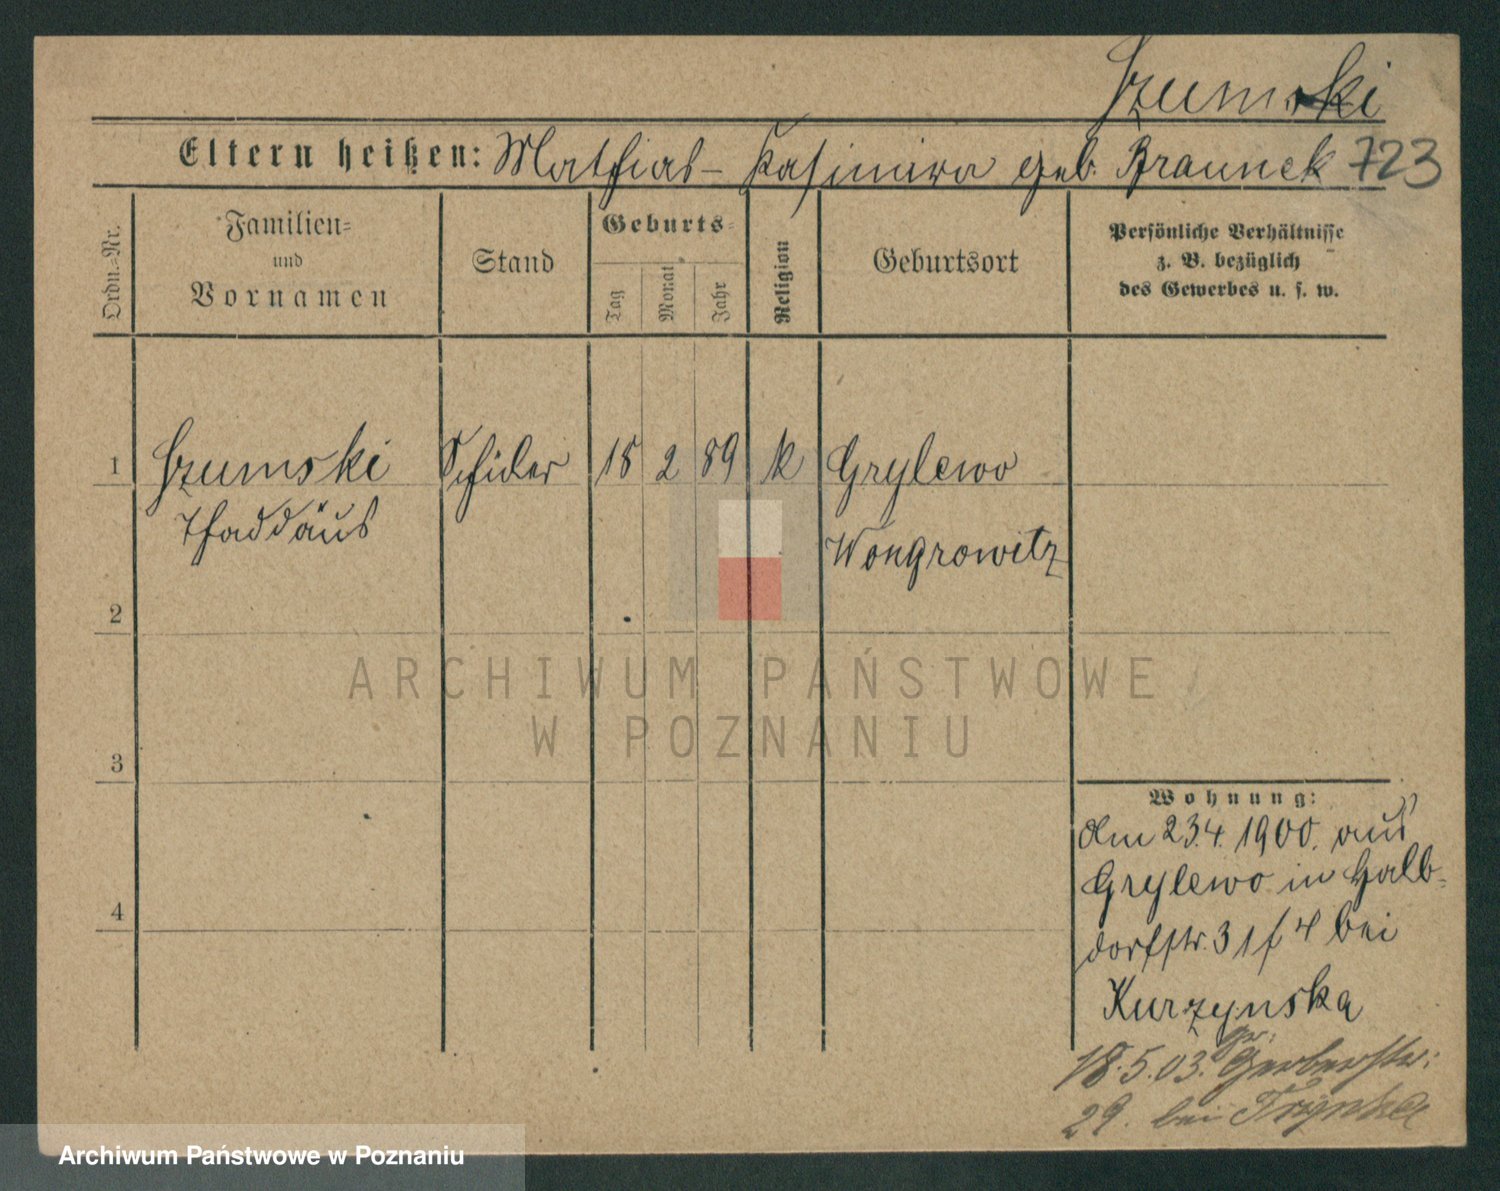 Szumski
Eltern heißen: Mathias - Kasimira geb. Braunek 723
Ordn.=Nr.
Familien=
und
Vornamen
Stand
Geburts=
Tag
Monat
Jahr
Religion
Geburtsort
Persönliche Verhältnisse
z. B. bezüglich
des Gewerbes u. s. w.
1 Szumski Schüler 18 2 89 k Grylewo
Thaddäus
Wongrowitz
2
3
4
ARCHIWUM PAŃSTWOWE
W POZNANIU
Wohnung:
Am 23.4. 1900. aus
Grylewo in Halb-
dorfstr. 31 f 4 bei
Kurzynska
18.5.03. gr. Gerberstr:
29. bei
Archiwum Państwowe w Poznaniu